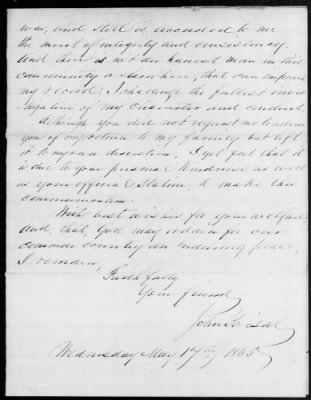 was, and still is accorded to me
the merit of integrity and consistency.
And there is not an honest man in this
community or elsewhere, that can impeach
my record; I challenge the fullest inves-
tigation of my character and conduct.
Although you did not request me to advise
you of my return to my family but left
it to my own discretion, I yet feel that it
is due to your personal kindness as well
as your official station, to make this
communication.
With best wishes for your welfare,
and, that, God may ordain for our
common country an enduring peace,
I remain,
Faithfully
Your friend
John
Wednesday May 17th 1865